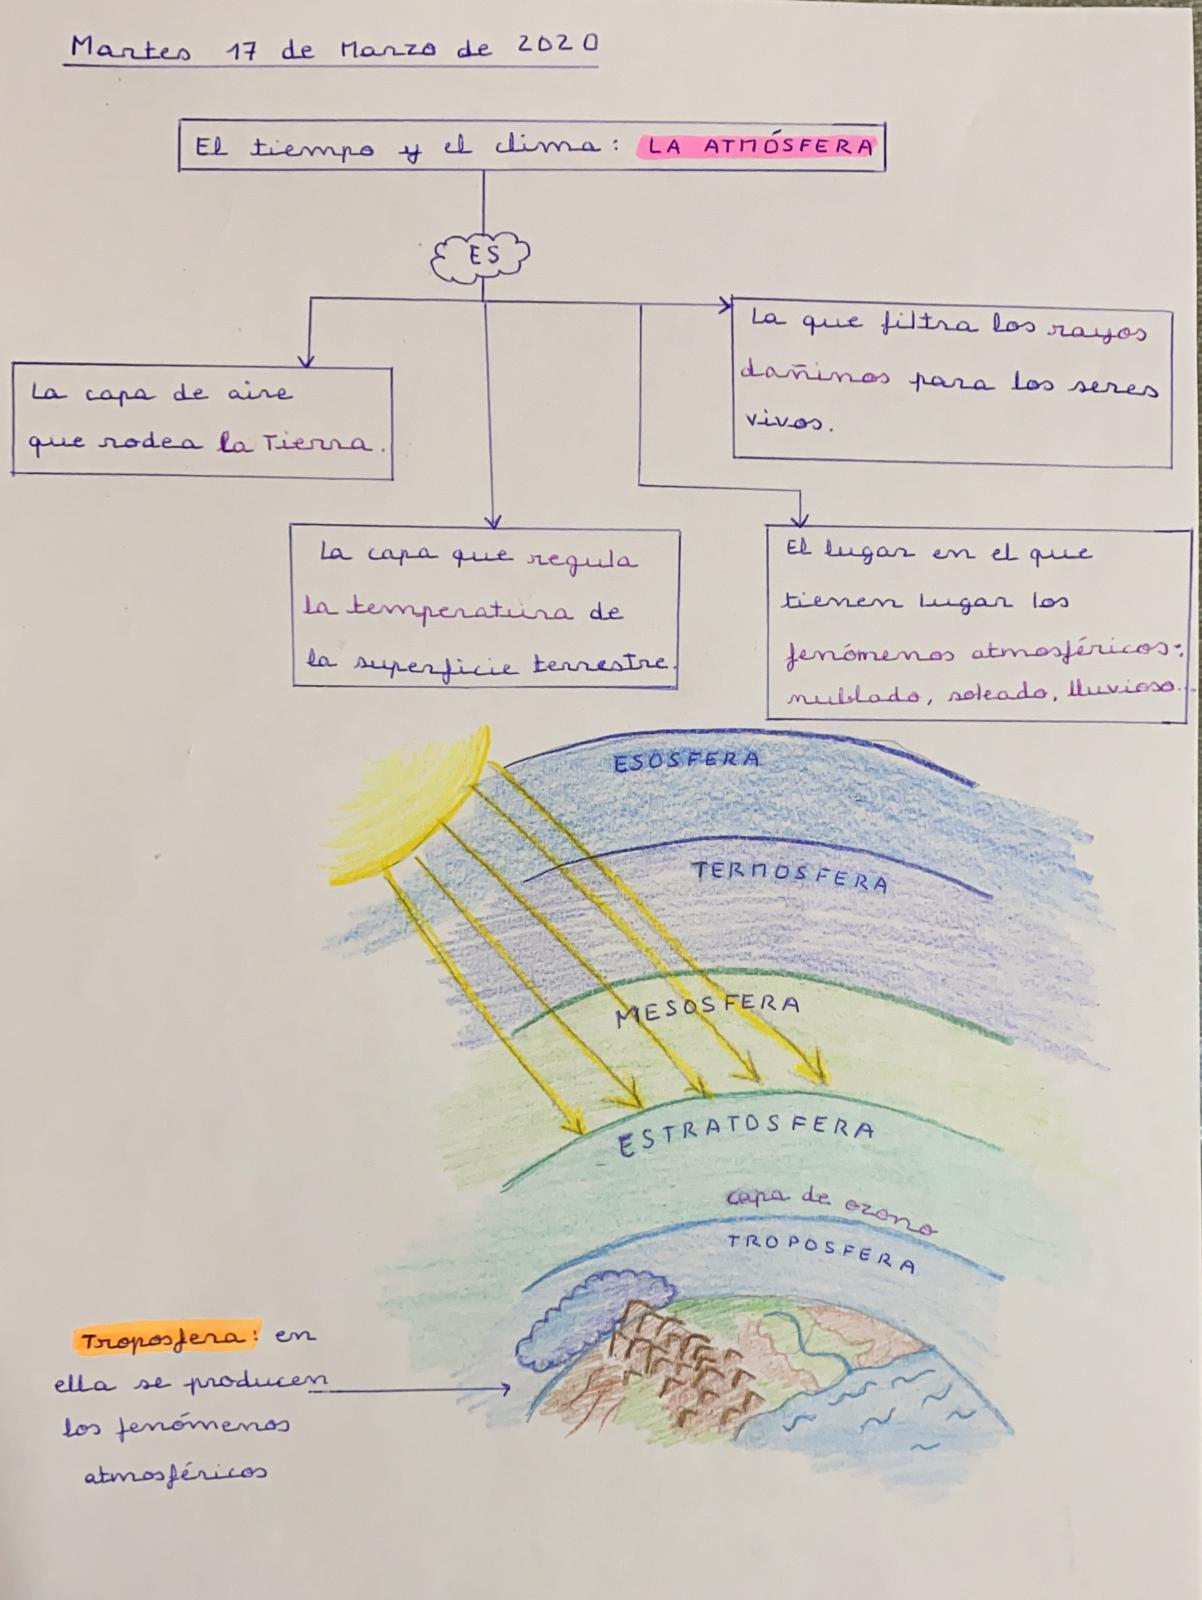 Martes 17 de Marzo de 2020
El tiempo y el clima: LA ATMÓSFERA
ES
La capa de aire
que rodea la Tierra.
La que filtra los rayos
dañinos para los seres
vivos.
La capa que regula
la temperatura de
la superficie terrestre.
El lugar en el que
tienen lugar los
fenómenos atmosféricos:
nublado, soleado, lluvioso..
ESOSFERA
TERMOSFERA
MESOSFERA
ESTRATOSFERA
capa de ozono
TROPOSFERA
Troposfera: en
ella se producen
los fenómenos
atmosféricos